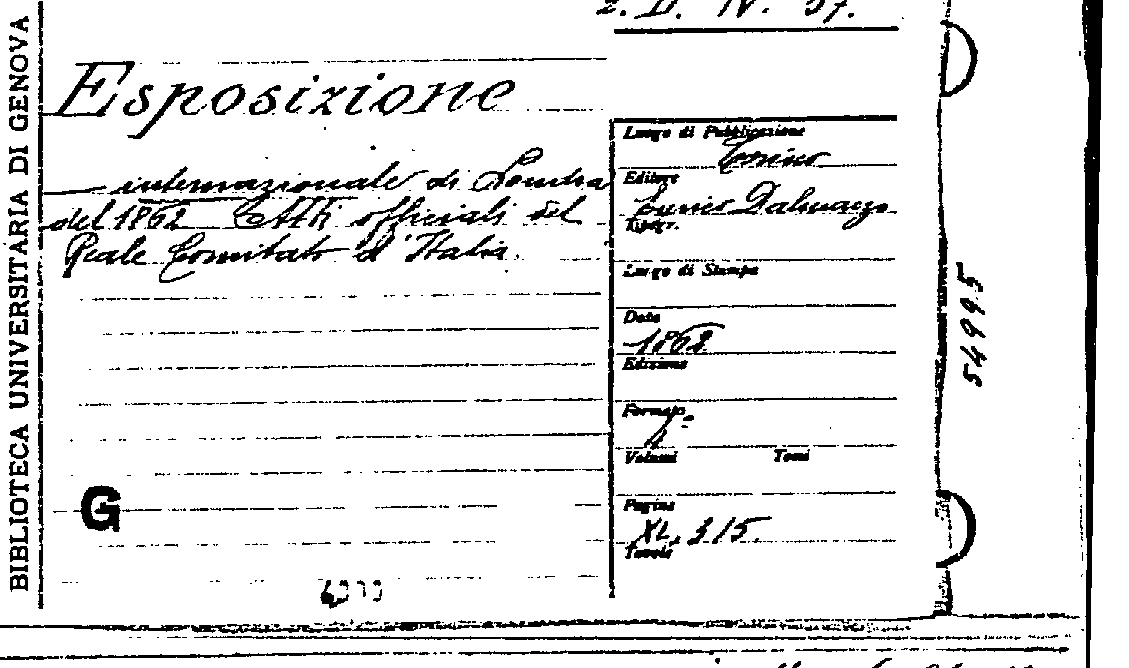 BIBLIOTECA UNIVERSITARIA DI GENOVA
2. D. IV. 37.
Esposizione
internazionale di Londra
del 1862 Atti officiali del
Reale Comitato d'Italia.
G
Luogo di Pubblicazione
Torino
Editore
Dalmazzo
Tipogr.
Luogo di Stampa
Data
1862
Edizione
Formato
Volumi Tomi
Pagine
XL, 315.
Tavole
54995